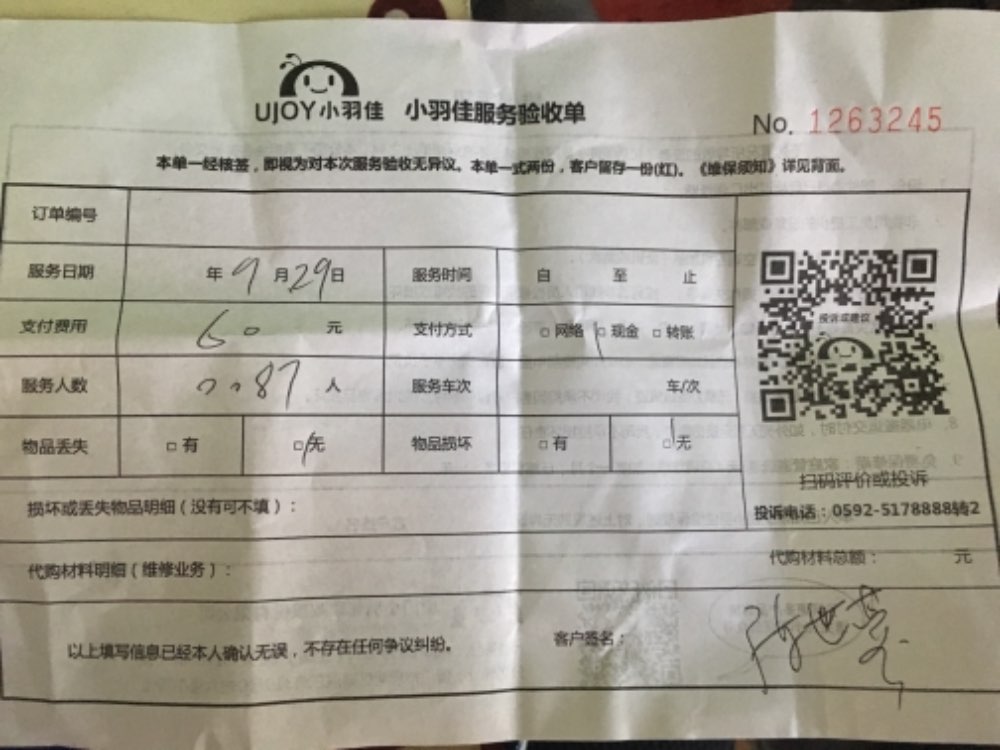 UJOY小羽佳 小羽佳服务验收单
No. 1263245
本单一经核签，即视为对本次服务验收无异议。本单一式两份，客户留存一份(红)。《维保须知》详见背面。
订单编号
服务日期 年 9 月 29 日 服务时间 自 至 止
支付费用 60 元 支付方式 □网络 □现金 □转账
投诉或建议
服务人数 0087 人 服务车次 车/次
物品丢失 □有 □无 物品损坏 □有 □无
扫码评价或投诉
损坏或丢失物品明细（没有可不填）：
投诉电话：0592-5178888转2
代购材料明细（维修业务）： 代购材料总额： 元
以上填写信息已经本人确认无误，不存在任何争议纠纷。 客户签名：